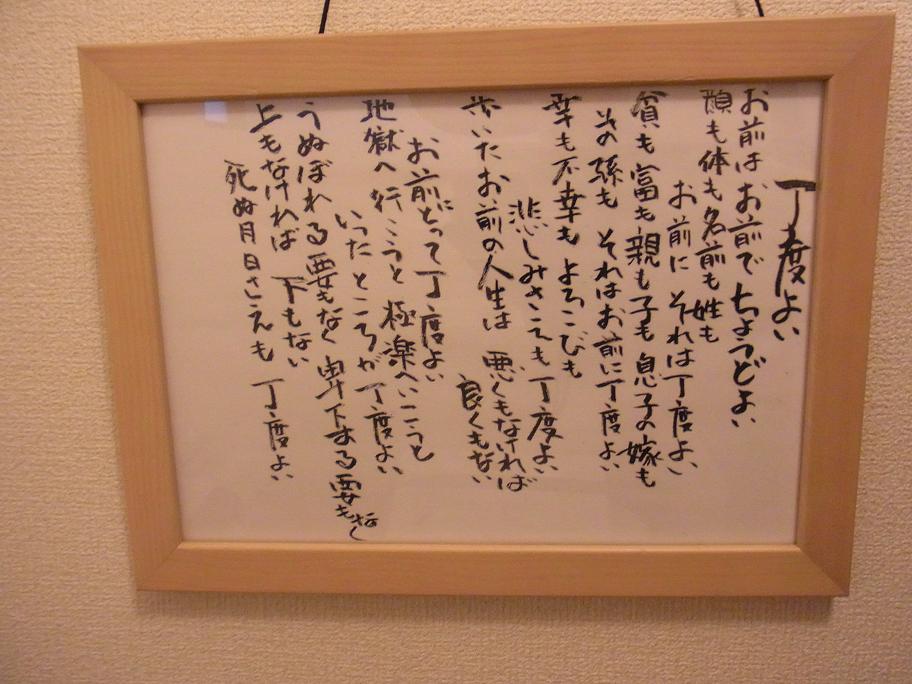 丁度よい
お前はお前でちょうどよい
顔も体も名前も姓も
お前に それは丁度よい
貧も富も親も子も息子の嫁も
その孫も それはお前に丁度よい
幸も不幸も よろこびも
悲しみさえも丁度よい
歩いたお前の人生は 悪くもなければ
良くもない
お前にとって丁度よい
地獄へ行こうと極楽へいこうと
いったところが丁度よい
うぬぼれる要もなく卑下する要もなし
上もなければ 下もない
死ぬ月日さえも 丁度よい